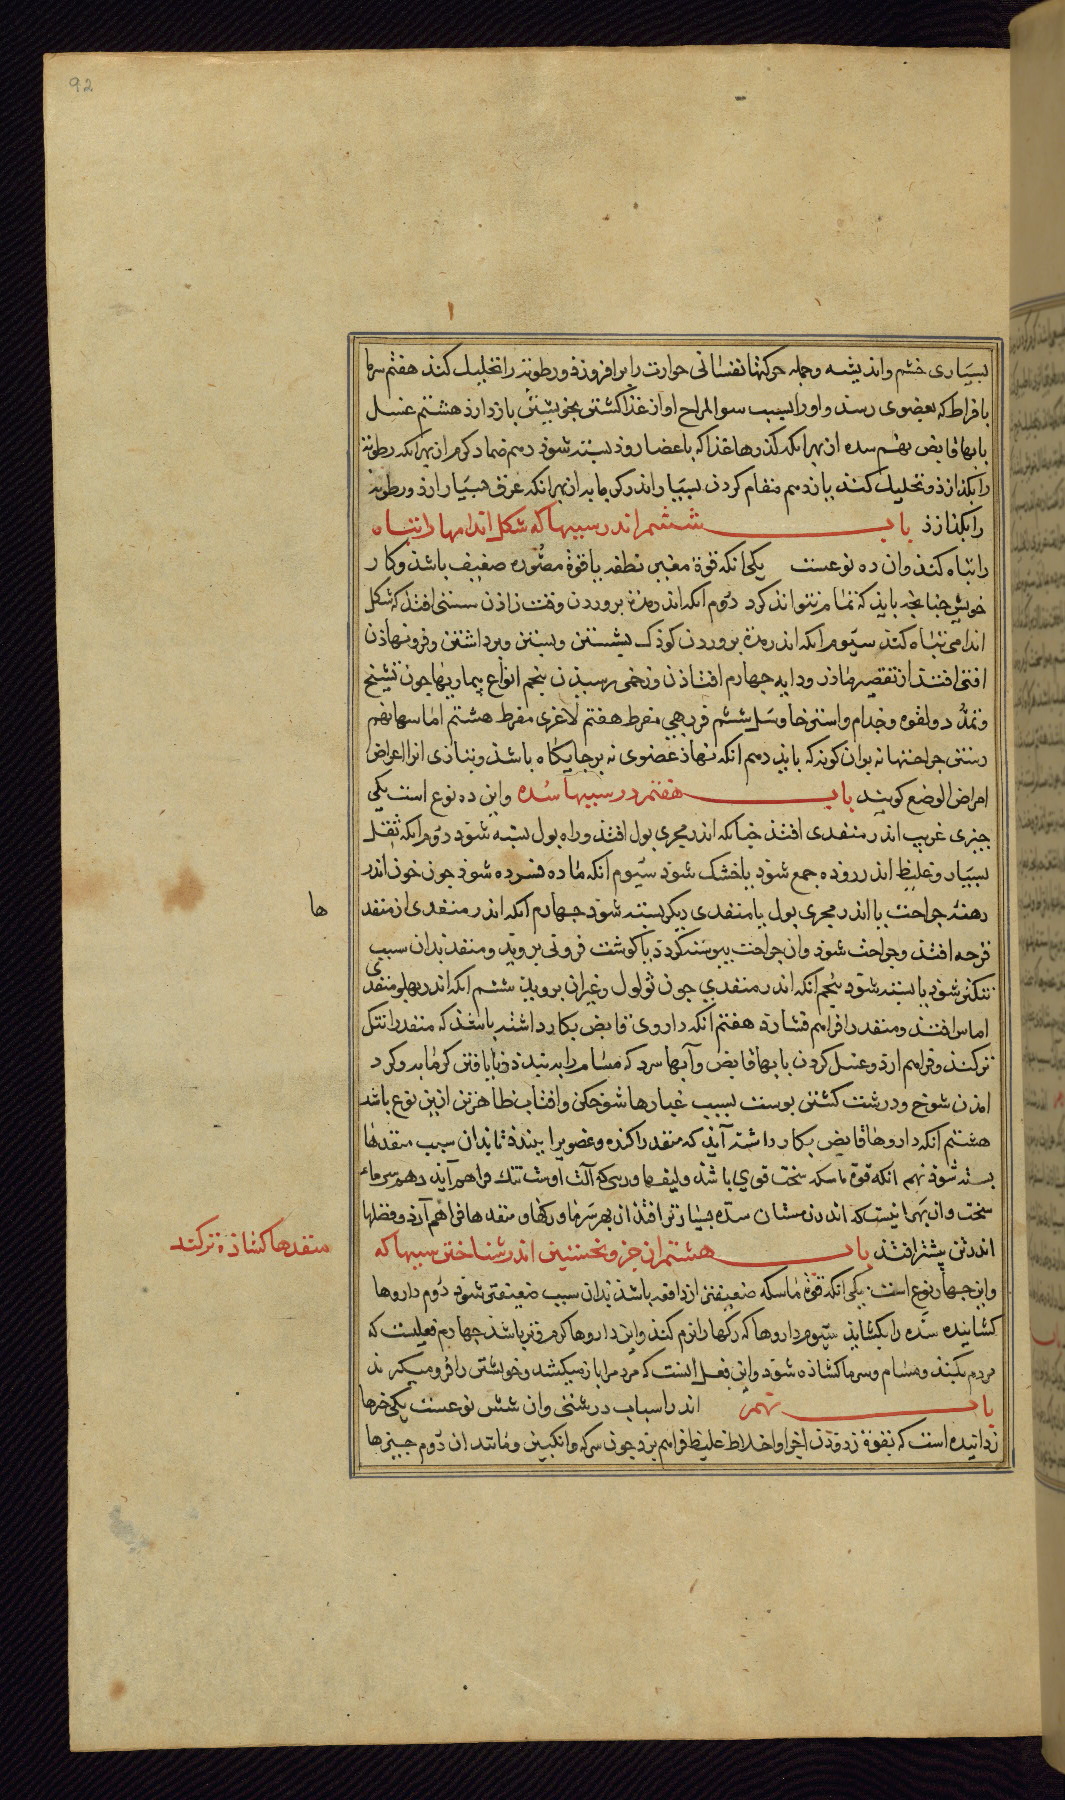 92
بسیاری خشم واندیشه وجمله حرکتها نفسانی حرارت را برافروزذ ورطوبتر را تحلیل کند هفتم سرما
بافراط که بعضوی رسذ واورا بسبب سوالمزاج او از غذا کشتن بخویشتن بازدارذ هشتم غسل
بابها قابض نهم سده از بهر انکه کذرها غذا که باعضا روذ بسته شوذ دهم ضماد کرم از بهر انکه رطوبة
را بکذازذ وتحلیل کند یازدهم مقام کردن بسیار اندر کرمابه از بهر انکه عرق بسیار ارذ ورطوبة
را بکذازذ باب ششم اندر سببها که شکل اندامها را تباه
را تباه کند وان ده نوعست یکی انکه قوة مغیر نطفه یا قوة مصوره ضعیف باشذ وکار
خویش جنانجه بایذ که تمام نتواند کرد دوم انکه اندر مدة بروردن وقت زاذن سستی افتذ که شکل
اندامی تباه کند سیوم انکه اندر مدة بروردن کوذک بشستن وبستن وبرداشتن وفرونهاذن
افتی افتد از تقصیر ماذر ودایه جهارم افتاذن وزخمی رسیذن بنجم انواع بیماریها جون تشنج
وتمدد ولقوه وجذام واستسقا وسل ششم فربهی مفرط هفتم لاغری مفرط هشتم اماسها نهم
رستن جراحتها نه بران کونه که بایذ دهم انکه نهاذ عضوی نه برجایکاه باشذ وبتازی انرا اعراض
امراض الوضع کویند باب هفتم در سببها سده واین ده نوع است یکی
جیزی غریب اندر منفدی افتذ جنانکه اندر مجری بول افتذ وراه بول بسته شوذ دوم انکه ثقل
بسیار وغلیظ اندر روده جمع شوذ یا خشک شوذ سیوم انکه ماده فسرده شوذ جون خون اندر
دهنه جراحت یا اندر مجری بول یا منفدی دیکر بسته شوذ جهارم انکه اندر منفدی از منفد
ها
قرحه افتذ وجراحت شوذ وان جراحت بیوسته کردد یا کوشت فزونی برویذ ومنفذ بدان سبب
تنکتر شوذ یا بسته شوذ بنجم انکه اندر منفدی جون ثولول وغیران برویذ ششم انکه اندر بهلو منفدی
اماس افتد ومنفد را فراهم فشارد هفتم انکه داروی قابض بکار داشته باشذ که منفد را تنک
تر کند وفراهم ارذ وغسل کردن بابها قابض وآبها سرد که مسام را ببندذ ونا یافتن کرمابه وکرد
امذن شوخ ودرشت کشتن بوست بسبب غبارها شوخکن وافتاب ظاهر تن ازین نوع باشد
هشتم انکه داروها قابض بکار داشته آیذ که منفد را کنده وعضو برا ببندذ تا بدان سبب منفدها
بسته شوذ نهم انکه قوة ماسکه سخت قوی باشد ولیفها ورسی که آلت اوست تنک فراهم آید دهم سرماء
سخت وان بهر انیست که اندر زمستان سده بسیار تر افتذ از بهر سرما ورکها ومنفدها فراهم آرذ وفضلها
اندر تن بیشتر افتذ باب هشتم از جزو نخستین اندر شناختن سببها که
منفدها کشاذه تر کند
واین جهار نوع است یکی انکه قوة ماسکه ضعیفتر از دافعه باشذ بذان سبب ضعیفتر شوذ دوم داروها
کشاینده سده را بکشایذ سیوم داروها که رکها را نرم کند واین داروها کرم وتر باشذ جهارم فعلیست که
مردم بکنند ومسام وسرما کشاذه شوذ واین فعل انست که مردم را باز میکشد وخویشتن را فرو میکیرند
باب نهم اندر اسباب درشتی وان شش نوعست یکی خرها
زدایتده است که بقوة زدوذن اجرا واخلاط غلیظ فراهم بزد جون سرکه وانکبین ومانند ان دوم جیزها